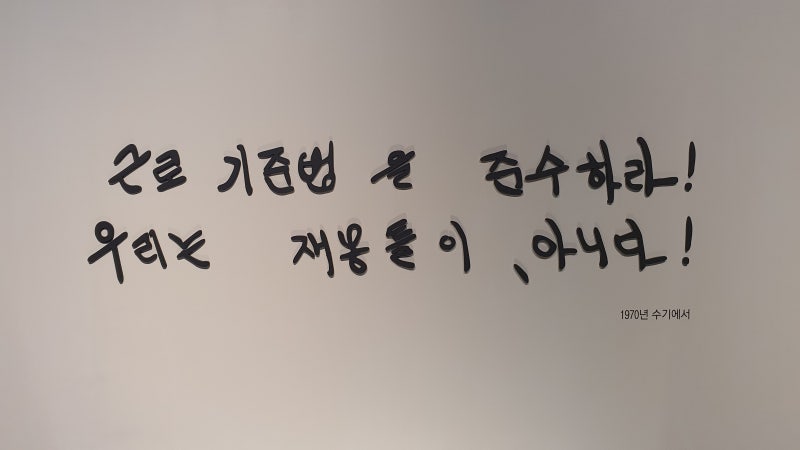 근로 기준법 을 준수하라!
우리는 재봉틀이 아니다!
1970년 수기에서